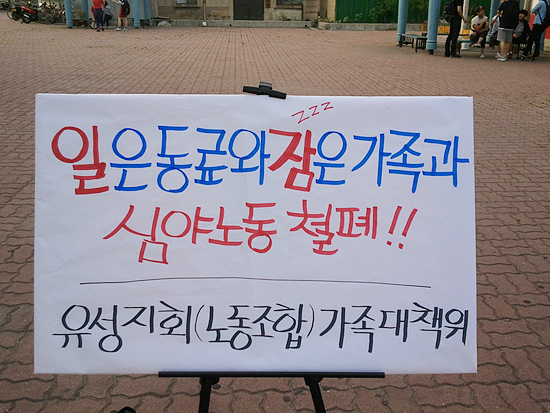 zzz
일은 동균와 잠은 가족과
심야노동 철폐!!
유성지회(노동조합)가족대책위